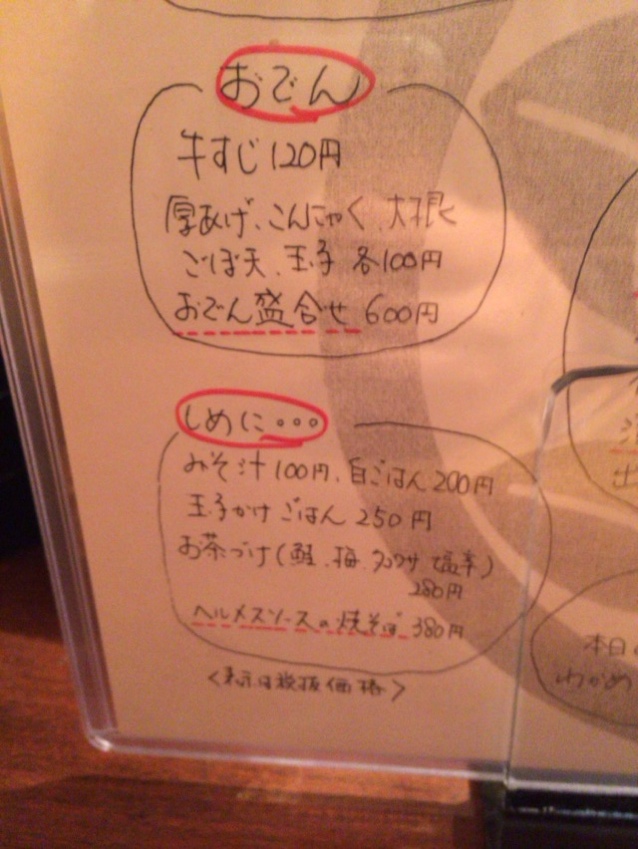 おでん
牛すじ 120円
厚あげ、こんにゃく、大根
ごぼ天、玉子 各100円
おでん盛合せ 600円
しめに・・・
みそ汁 100円、白ごはん 200円
玉子かけごはん 250円
お茶づけ(鮭、梅、タコワサ、塩辛)
280円
ヘルメスソースの焼そば 380円
<表示は税抜価格>
本日
わかめ